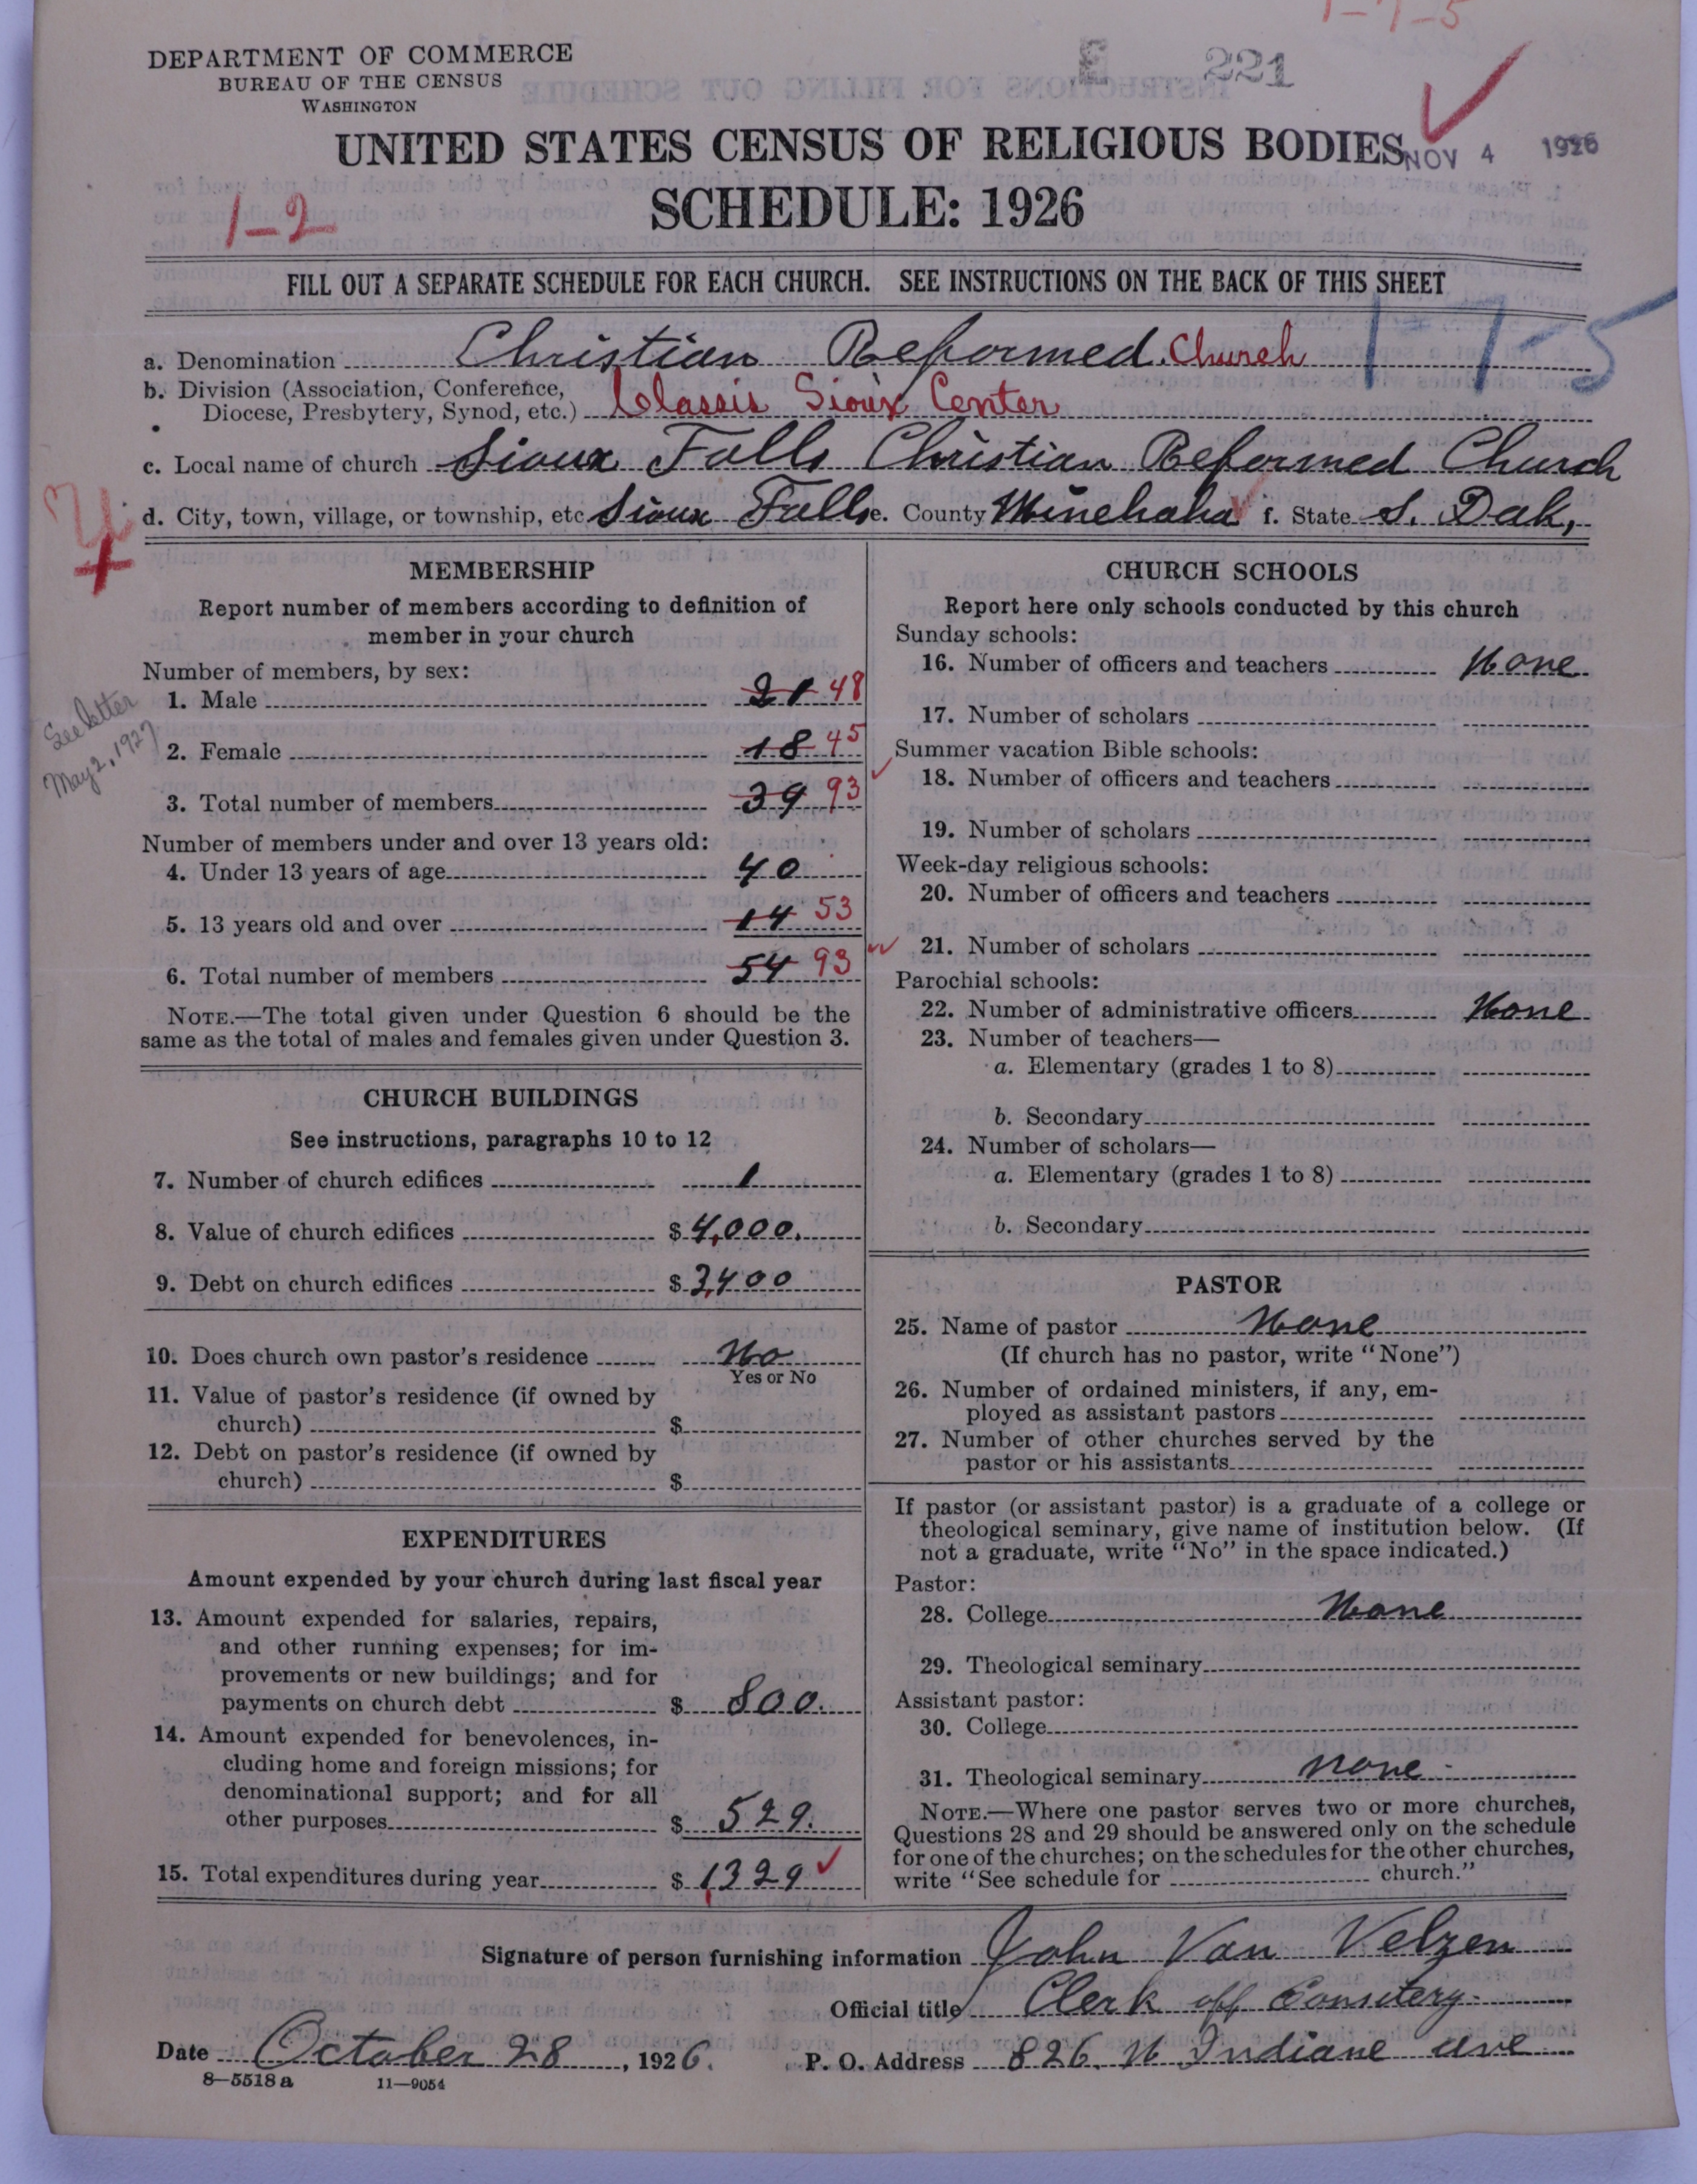 1-7-5
DEPARTMENT OF COMMERCE
BUREAU OF THE CENSUS
WASHINGTON
E 221
UNITED STATES CENSUS OF RELIGIOUS BODIES
NOV 4 1926
SCHEDULE: 1926
1-2
FILL OUT A SEPARATE SCHEDULE FOR EACH CHURCH. SEE INSTRUCTIONS ON THE BACK OF THIS SHEET
1-7-5
a. Denomination Christian Reformed Church
b. Division (Association, Conference,
Diocese, Presbytery, Synod, etc.) Classis Sioux Center
c. Local name of church Sioux Falls Christian Reformed Church
d. City, town, village, or township, etc Sioux Falls e. County Minehaha f. State S. Dak,
MEMBERSHIP
Report number of members according to definition of
member in your church
Number of members, by sex:
1. Male 21 48
See letter
May 2, 1927
2. Female 18 45
3. Total number of members 39 93
Number of members under and over 13 years old:
4. Under 13 years of age 40
5. 13 years old and over 14 53
6. Total number of members 54 93
NOTE.—The total given under Question 6 should be the
same as the total of males and females given under Question 3.
CHURCH BUILDINGS
See instructions, paragraphs 10 to 12
7. Number of church edifices 1
8. Value of church edifices $ 4,000.
9. Debt on church edifices $ 3,400
10. Does church own pastor's residence No
Yes or No
11. Value of pastor's residence (if owned by
church) $
12. Debt on pastor's residence (if owned by
church) $
EXPENDITURES
Amount expended by your church during last fiscal year
13. Amount expended for salaries, repairs,
and other running expenses; for im-
provements or new buildings; and for
payments on church debt $ 800.
14. Amount expended for benevolences, in-
cluding home and foreign missions; for
denominational support; and for all
other purposes $ 529.
15. Total expenditures during year $ 1,329
CHURCH SCHOOLS
Report here only schools conducted by this church
Sunday schools:
16. Number of officers and teachers None
17. Number of scholars
Summer vacation Bible schools:
18. Number of officers and teachers
19. Number of scholars
Week-day religious schools:
20. Number of officers and teachers
21. Number of scholars
Parochial schools:
22. Number of administrative officers None
23. Number of teachers—
a. Elementary (grades 1 to 8)
b. Secondary
24. Number of scholars—
a. Elementary (grades 1 to 8)
b. Secondary
PASTOR
25. Name of pastor None
(If church has no pastor, write "None")
26. Number of ordained ministers, if any, em-
ployed as assistant pastors
27. Number of other churches served by the
pastor or his assistants
If pastor (or assistant pastor) is a graduate of a college or
theological seminary, give name of institution below. (If
not a graduate, write "No" in the space indicated.)
Pastor:
28. College None
29. Theological seminary
Assistant pastor:
30. College
31. Theological seminary none
NOTE.—Where one pastor serves two or more churches,
Questions 28 and 29 should be answered only on the schedule
for one of the churches; on the schedules for the other churches,
write "See schedule for church."
Signature of person furnishing information John Van Velzen
Official title Clerk off Consitery
Date October 28, 1926. P. O. Address 826. N Indiane ave
8—5518 a 11—9054